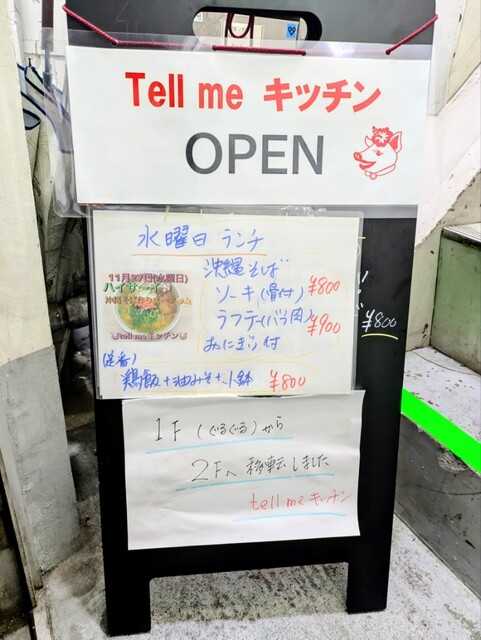 Tell me キッチン
OPEN
水曜日 ランチ
11月27日(水曜日)
ハイサイ
tell me キッチン
沖縄そば
ソーキ(骨付) ¥800
ラフテー(バラ肉) ¥900
おにぎり付
(定番)
鶏飯+油みそ+小鉢 ¥800
¥800
1F (ぐるぐる)から
2Fへ移転しました
tell me キッチン